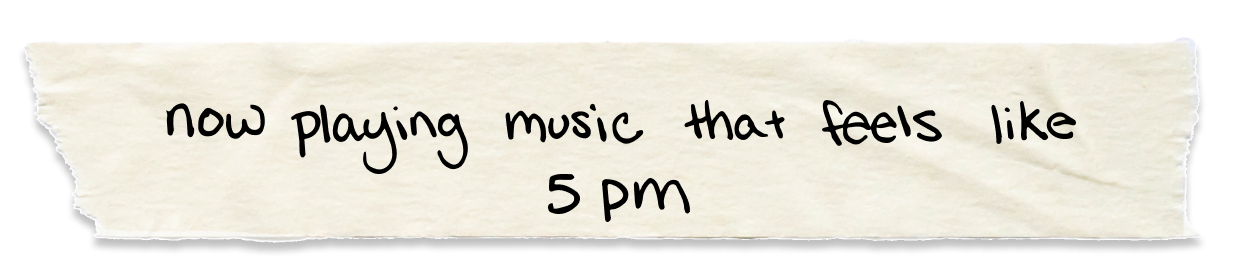 now playing music that feels like
5 pm